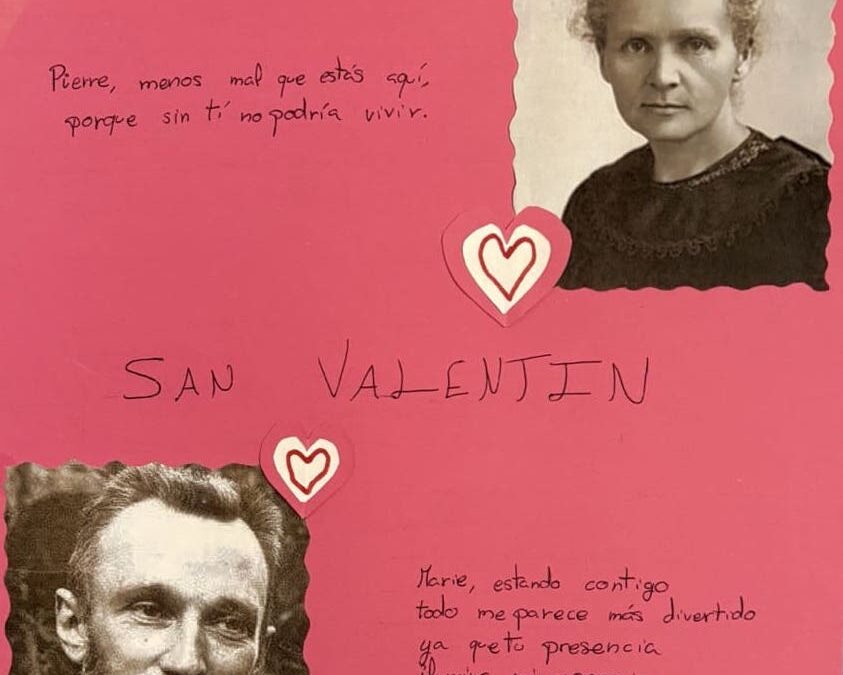 Pierre, menos mal que estás aquí,
porque sin tí no podría vivir.
SAN VALENTIN
Marie, estando contigo
todo me parece más divertido
ya que tu presencia